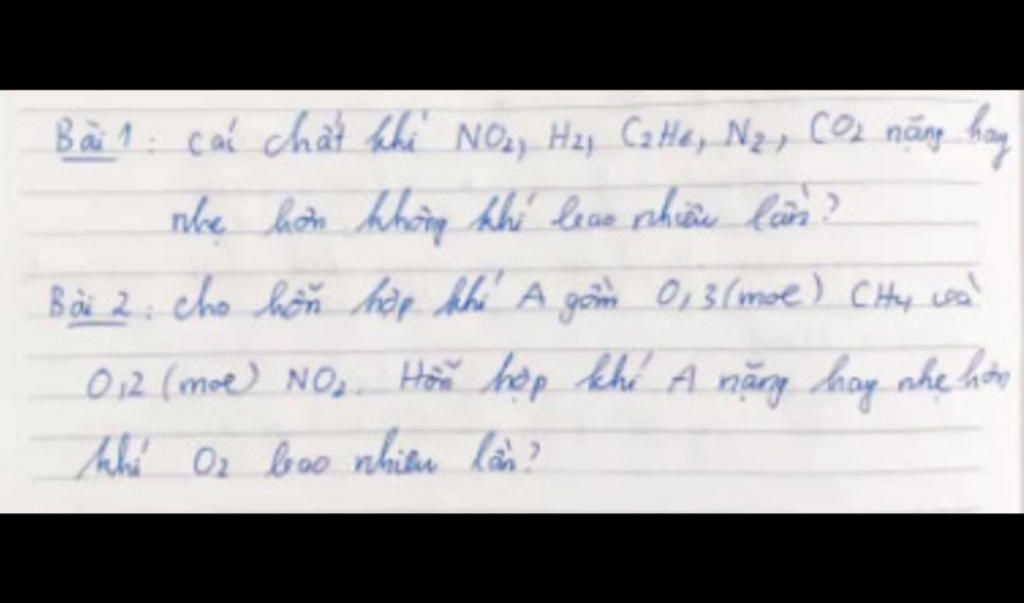 Bài 1: các chất khí NO2, H2, C2H6, N2, CO2 nặng hay
nhẹ hơn không khí bao nhiêu lần?
Bài 2: cho hỗn hợp khí A gồm 0,3(mol) CH4 và
0,2 (mol) NO2. Hỗn hợp khí A nặng hay nhẹ hơn
khí O2 bao nhiêu lần?